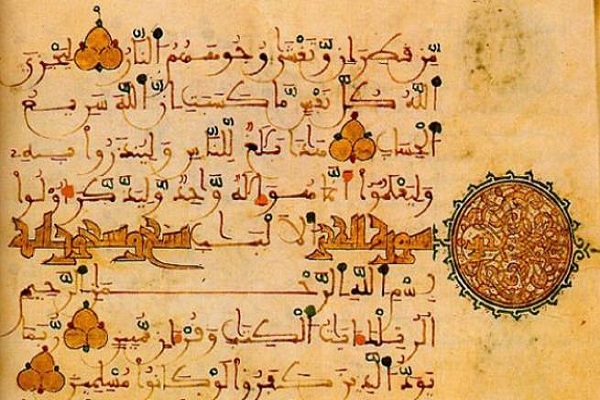 مِّن قَطِرَانٍ وَتَغْشَىٰ وُجُوهَهُمُ النَّارُ لِيَجْزِيَ
اللَّهُ كُلَّ نَفْسٍ مَّا كَسَبَتْ إِنَّ اللَّهَ سَرِيعُ
الْحِسَابِ هَٰذَا بَلَٰغٌ لِّلنَّاسِ وَلِيُنذَرُوا بِهِ
وَلِيَعْلَمُوا أَنَّمَا هُوَ إِلَٰهٌ وَاحِدٌ وَلِيَذَّكَّرَ أُولُوا
سورة الحجر الْأَلْبَابِ تسع وتسعون اية
بِسْمِ اللَّهِ الرَّحْمَٰنِ الرَّحِيمِ
الٓر تِلْكَ ءَايَٰتُ الْكِتَٰبِ وَقُرْءَانٍ مُّبِينٍ رُّبَمَا
يَوَدُّ الَّذِينَ كَفَرُوا لَوْ كَانُوا مُسْلِمِينَ